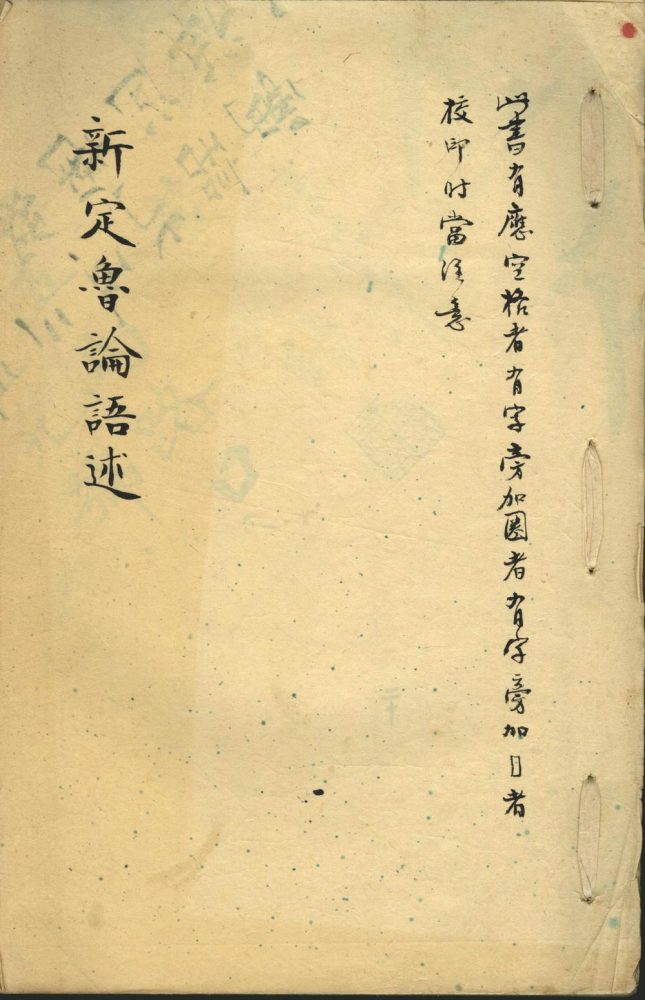 此書有應空格者有字旁加圈者有字旁加〡者
校印时當注意
新定魯論語述